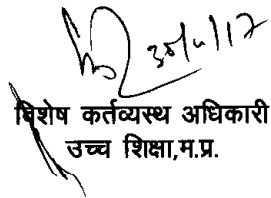 विशेष कर्तव्यस्थ अधिकारी
उच्च शिक्षा,म.प्र.